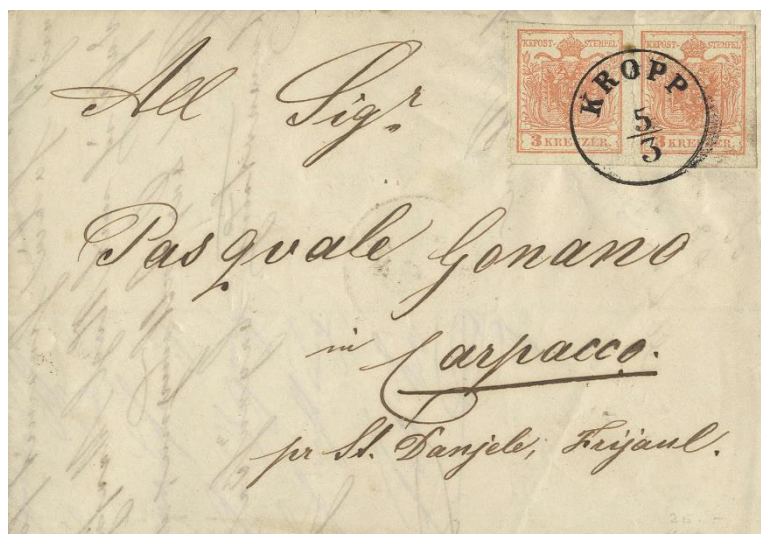 KKPOST-STEMPEL KKPOST-STEMPEL
3 KREUZER. 3 KREUZER.
KROPP
5/3
All Sigr
Pasquale Gonano
in Carpacco.
pr St. Danjele, Frijaul.